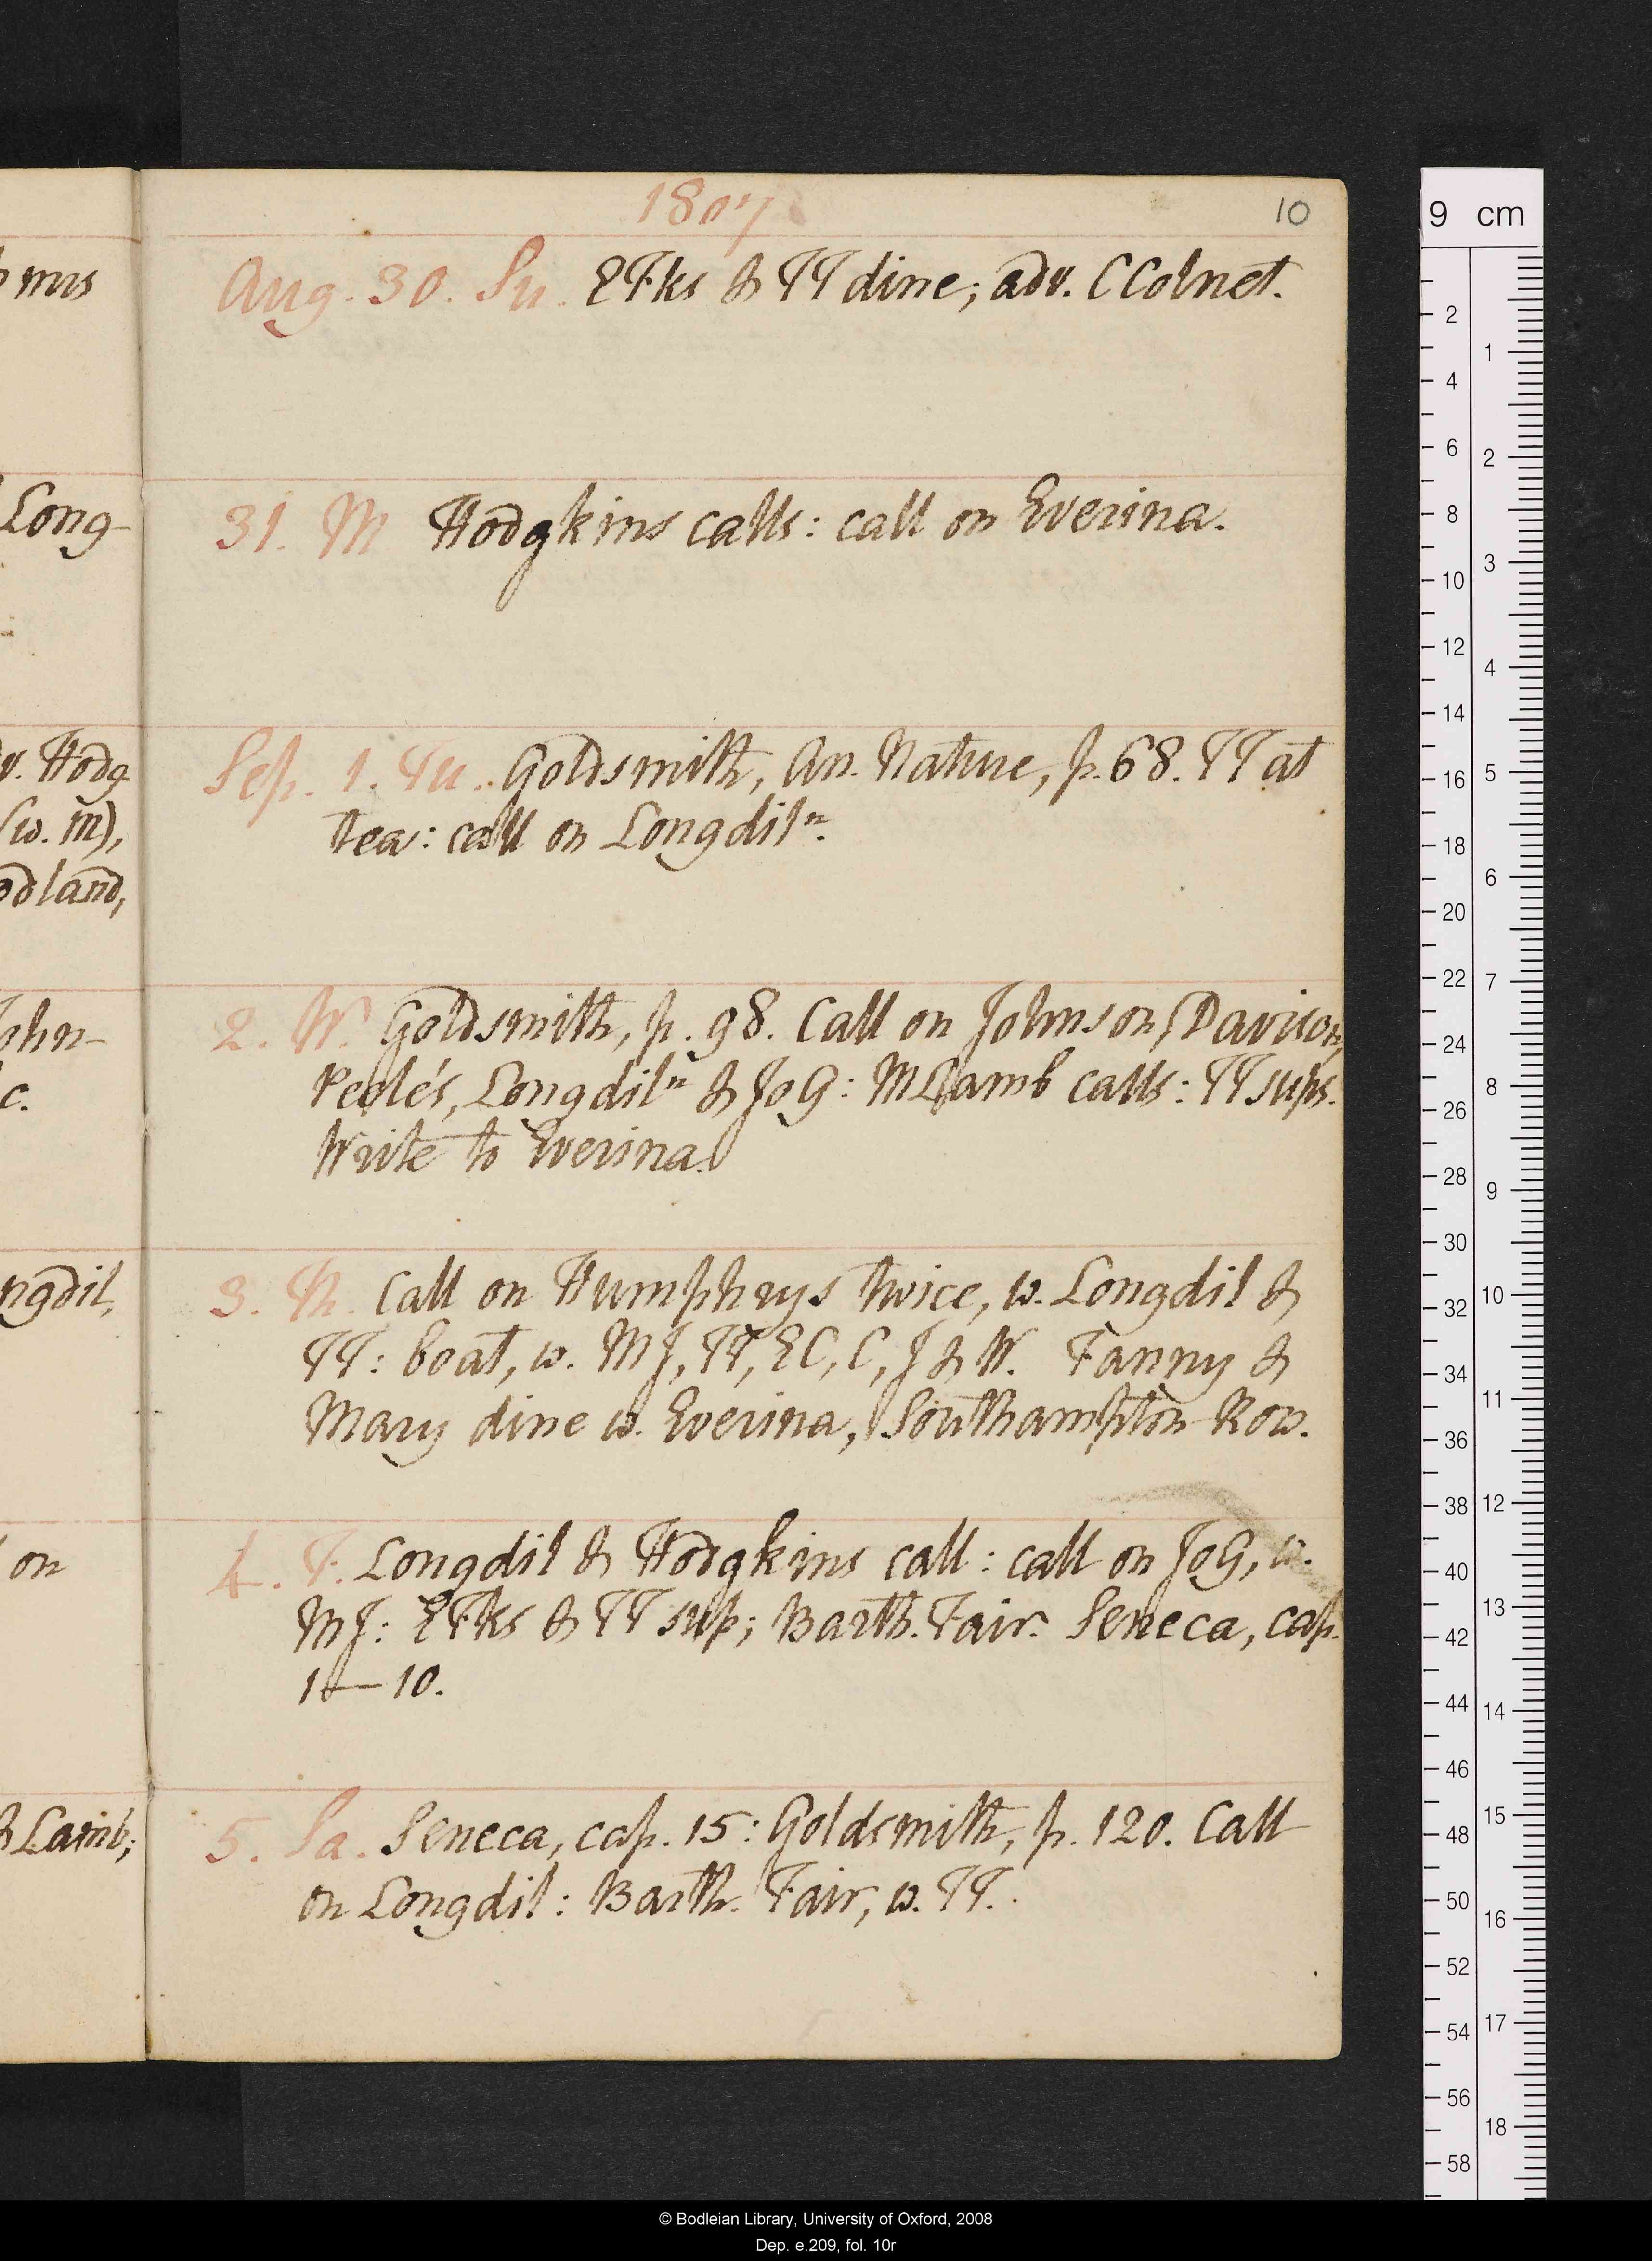 1807
10
Aug. 30. Su. EFks & TT dine; adv. CColnet.
31. M Hodgkins calls: call on Everina.
Sep. 1. Tu. Goldsmith, An. Nature, p. 68. TT at
tea: call on Longdilⁿ.
2. W. Goldsmith, p. 98. Call on Johnson, Davison,
Peele's, Longdilⁿ & JoG: MLamb calls: TT sups.
Write to Everina.
3. Th. Call on Humphrys twice, w. Longdil &
TT: boat, w. MJ, TT, EC, C, J & W. Fanny &
Mary dine w. Everina, Southampton Row.
4. F. Longdil & Hodgkins call: call on JoG, w.
MJ: EFks & TT sup; Barth. Fair. Seneca, cap.
1—10.
5. Sa. Seneca, cap. 15: Goldsmith, p. 120. Call
on Longdil: Barth. Fair, w. TT.
mrs
Long-
v. Hodg
(w. M),
odland,
John-
c.
ngdil,
on
& Lamb;
9 cm
2
4
6
8
10
12
14
16
18
20
22
24
26
28
30
32
34
36
38
40
42
44
46
48
50
52
54
56
58
1
2
3
4
5
6
7
8
9
10
11
12
13
14
15
16
17
18
© Bodleian Library, University of Oxford, 2008
Dep. e.209, fol. 10r